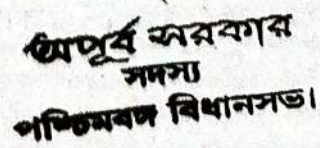 অপূর্ব সরকার
সদস্য
পশ্চিমবঙ্গ বিধানসভা।